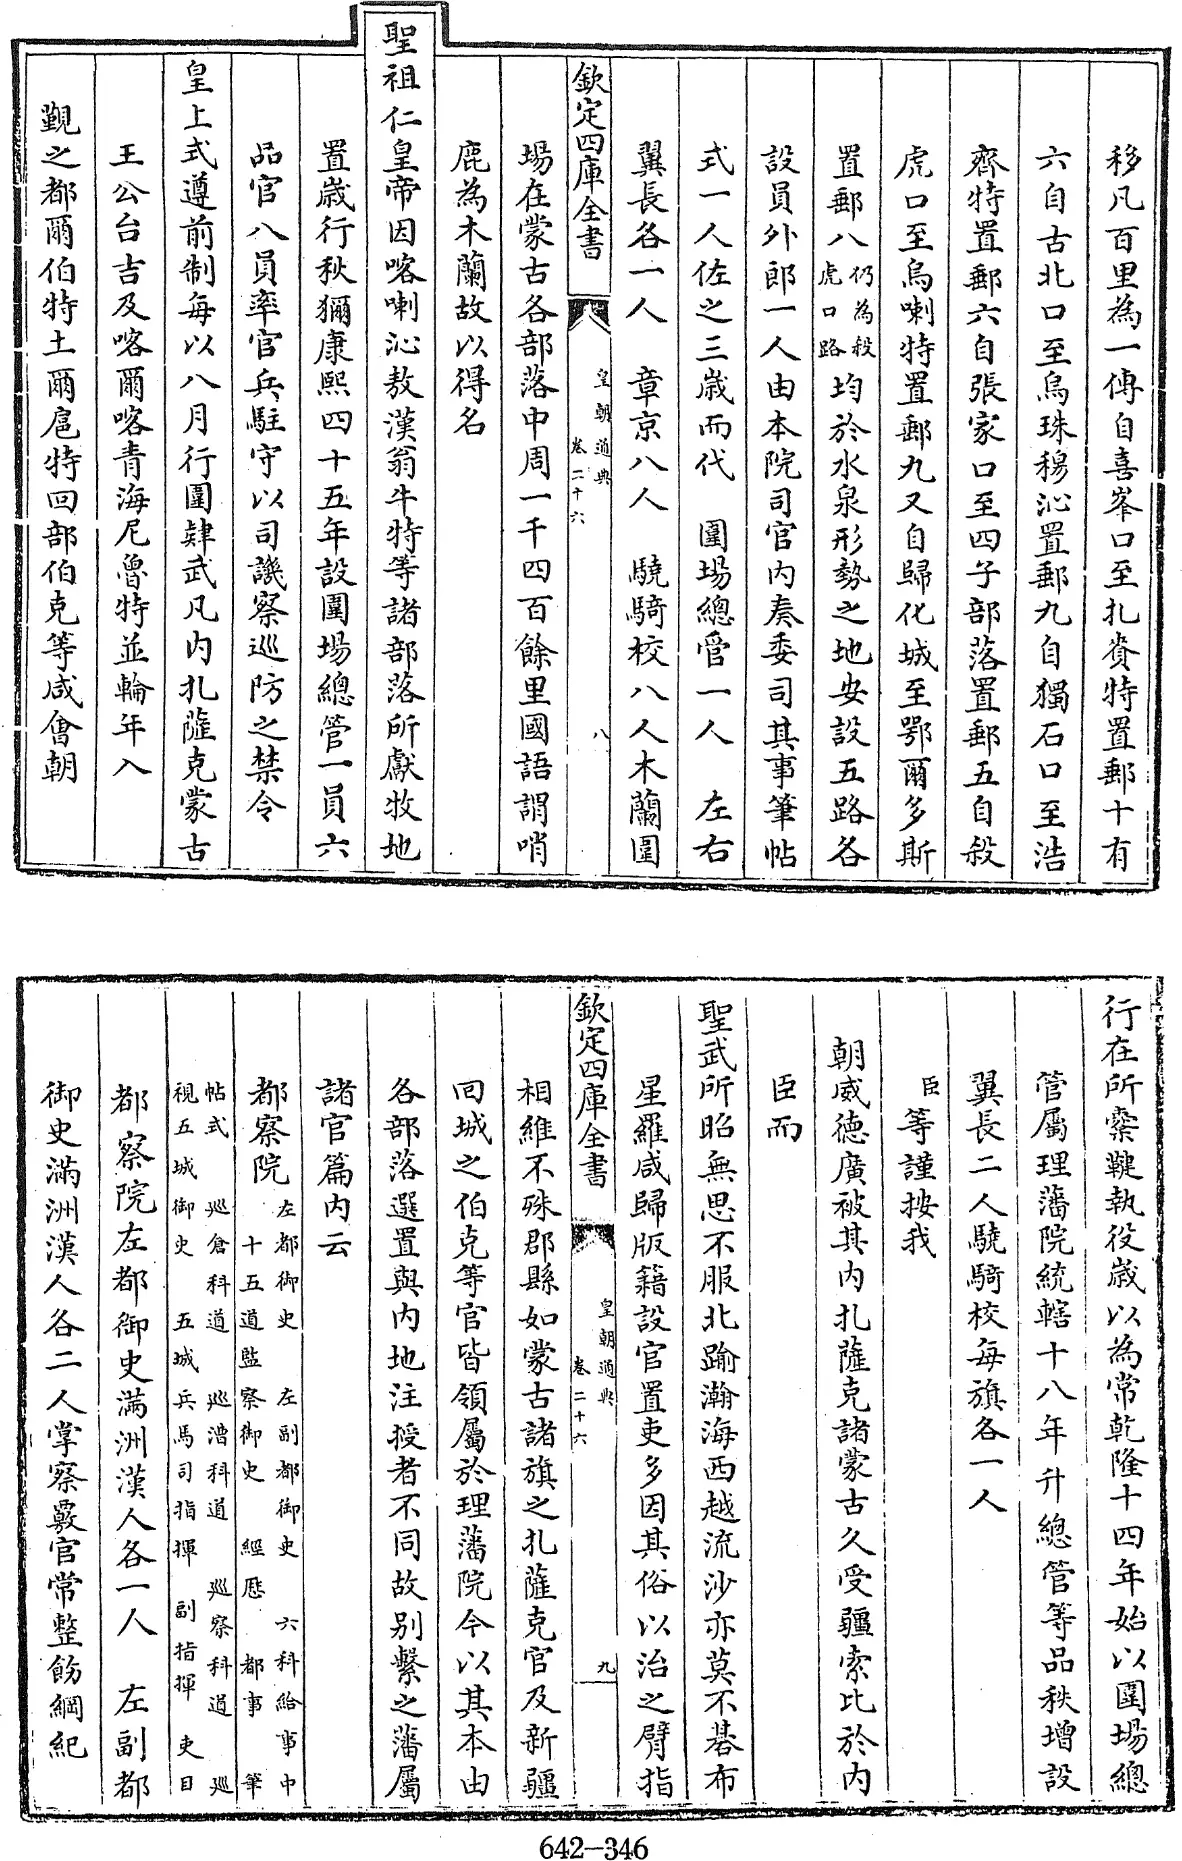 移凡百里為一傳自喜峯口至扎賚特置郵十有
六自古北口至烏珠穆沁置郵九自獨石口至浩
齊特置郵六自張家口至四子部落置郵五自殺
虎口至烏喇特置郵九又自歸化城至鄂爾多斯
置郵八仍為殺虎口路均於水泉形勢之地安設五路各
設員外郎一人由本院司官内奏委司其事筆帖
式一人佐之三歳而代　圍場總管一人　左右
翼長各一人　章京八人　驍騎校八人木蘭圍
欽定四庫全書　皇朝通典卷二十六　八
場在蒙古各部落中周一千四百餘里國語謂哨
鹿為木蘭故以得名
聖祖仁皇帝因喀喇沁敖漢翁牛特等諸部落所獻牧地
置歳行秋獮康熙四十五年設圍場總管一員六
品官八員率官兵駐守以司譏察巡防之禁令
皇上式遵前制每以八月行圍肄武凡内扎薩克蒙古
王公台吉及喀爾喀青海厄魯特並輪年入
覲之都爾伯特土爾扈特回部伯克等咸會朝
行在所櫜鞬執役歳以為常乾隆十四年始以圍場總
管屬理藩院統轄十八年升總管等品秩增設
翼長二人驍騎校每旗各一人
臣等謹按我
朝威徳廣被其内扎薩克諸蒙古久受疆索比於内
臣而
聖武所昭無思不服北踰瀚海西越流沙亦莫不碁布
星羅咸歸版籍設官置吏多因其俗以治之臂指
欽定四庫全書　皇朝通典卷二十六　九
相維不殊郡縣如蒙古諸旗之扎薩克官及新疆
回城之伯克等官皆領屬於理藩院今以其本由
各部落選置與内地注授者不同故别繫之藩屬
諸官篇内云
都察院　左都御史　左副都御史　六科給事中　十五道監察御史　經歴　都事　筆
帖式　巡倉科道　巡漕科道　巡察科道　巡視五城御史　五城兵馬司指揮　副指揮　吏目
都察院左都御史滿洲漢人各一人　左副都
御史滿洲漢人各二人掌察覈官常整飭綱紀
642-346